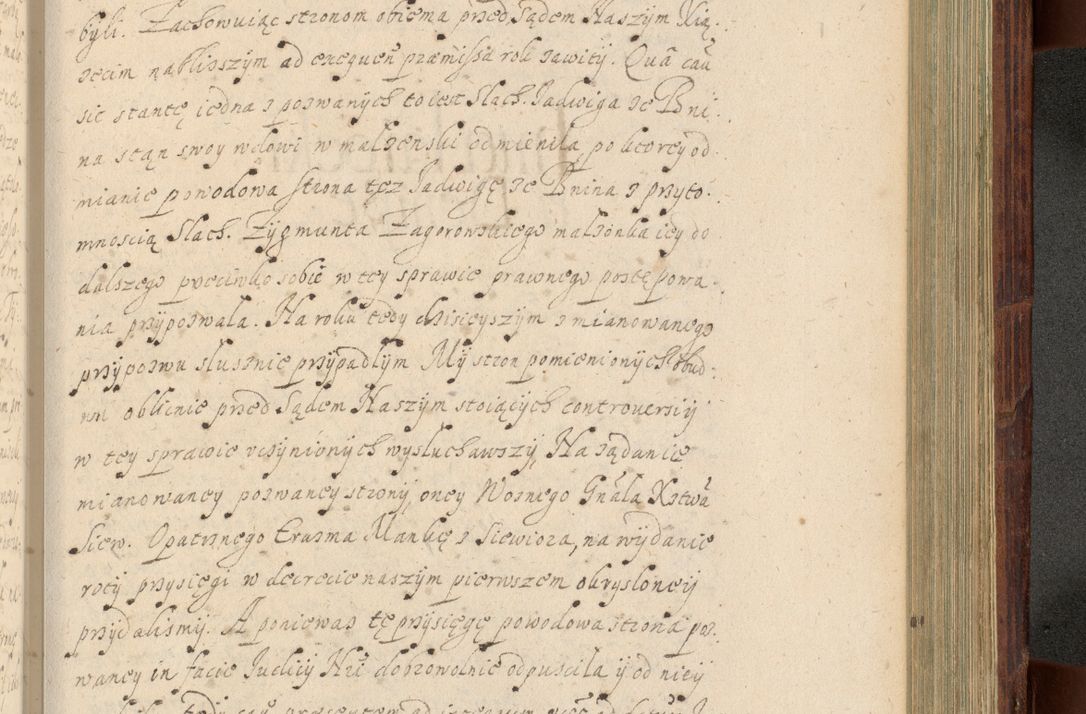 byli. Zachowuiąc stronom obiema przed Sądem Naszym Xią:
zecim nabliższym ad exequeñ præmissa rok zawity. Quã cau
sie stantę iedna z pozwanych to iest Slach. Jadwiga ze Bni:
na stąn swoy wdowi w malzenski odmienila po ktorey od
mianie powodowa strona tęz Jadwigę ze Bnina z przyto:
mnoscią Slach. Zygmunta Zagorowskiego malzonka iey do
dalszego przeciwko sobie w tey sprawie prawnego postępowa:
nia przypozwala. Na roku tedy dzisieyszym z mianowanego
przypozwu slusznie przypadlym My stron pomienionych obud:
nu oblicnie przed Sądem Naszym stoiących controversiy
w tey sprawie vczynionych wysluchawszy, Na ządanie
mianowaney pozwaney strony, oney Woznego Gnãla Xstwã
Siew. Opatrznego Erazma Mankę z Siewiora, na wydanie
roty przysięgi w decrecie naszym pierwszem okrysloney
przydalismy. A poniewaz tę przysięgę powodowa strona poz:
waney in facie Judicy Nri dobrowolnie odpuscila y od niey